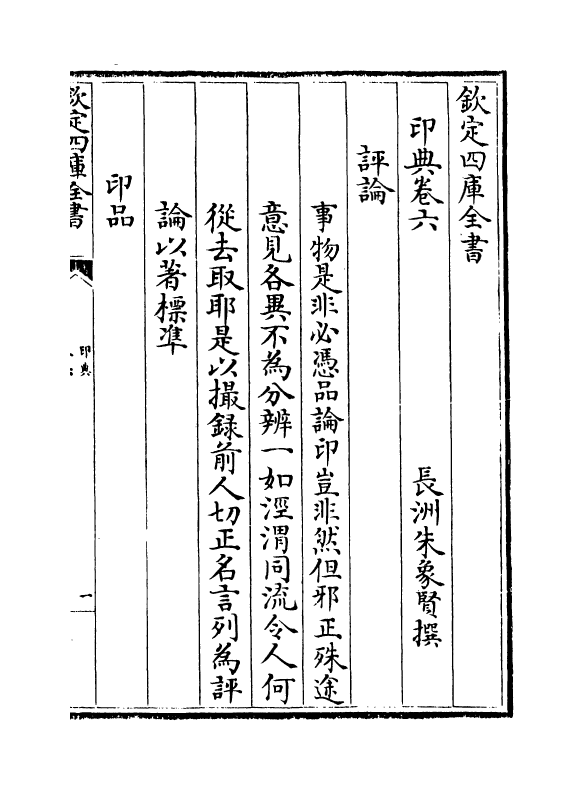 欽定四庫全書
印典卷六
長洲朱象賢撰
評論
事物是非必憑品論印豈非然但邪正殊途
意見各異不為分辨一如涇渭同流令人何
從去取耶是以撮録前人切正名言列為評
論以著標準
印品
欽定四庫全書
印典
一